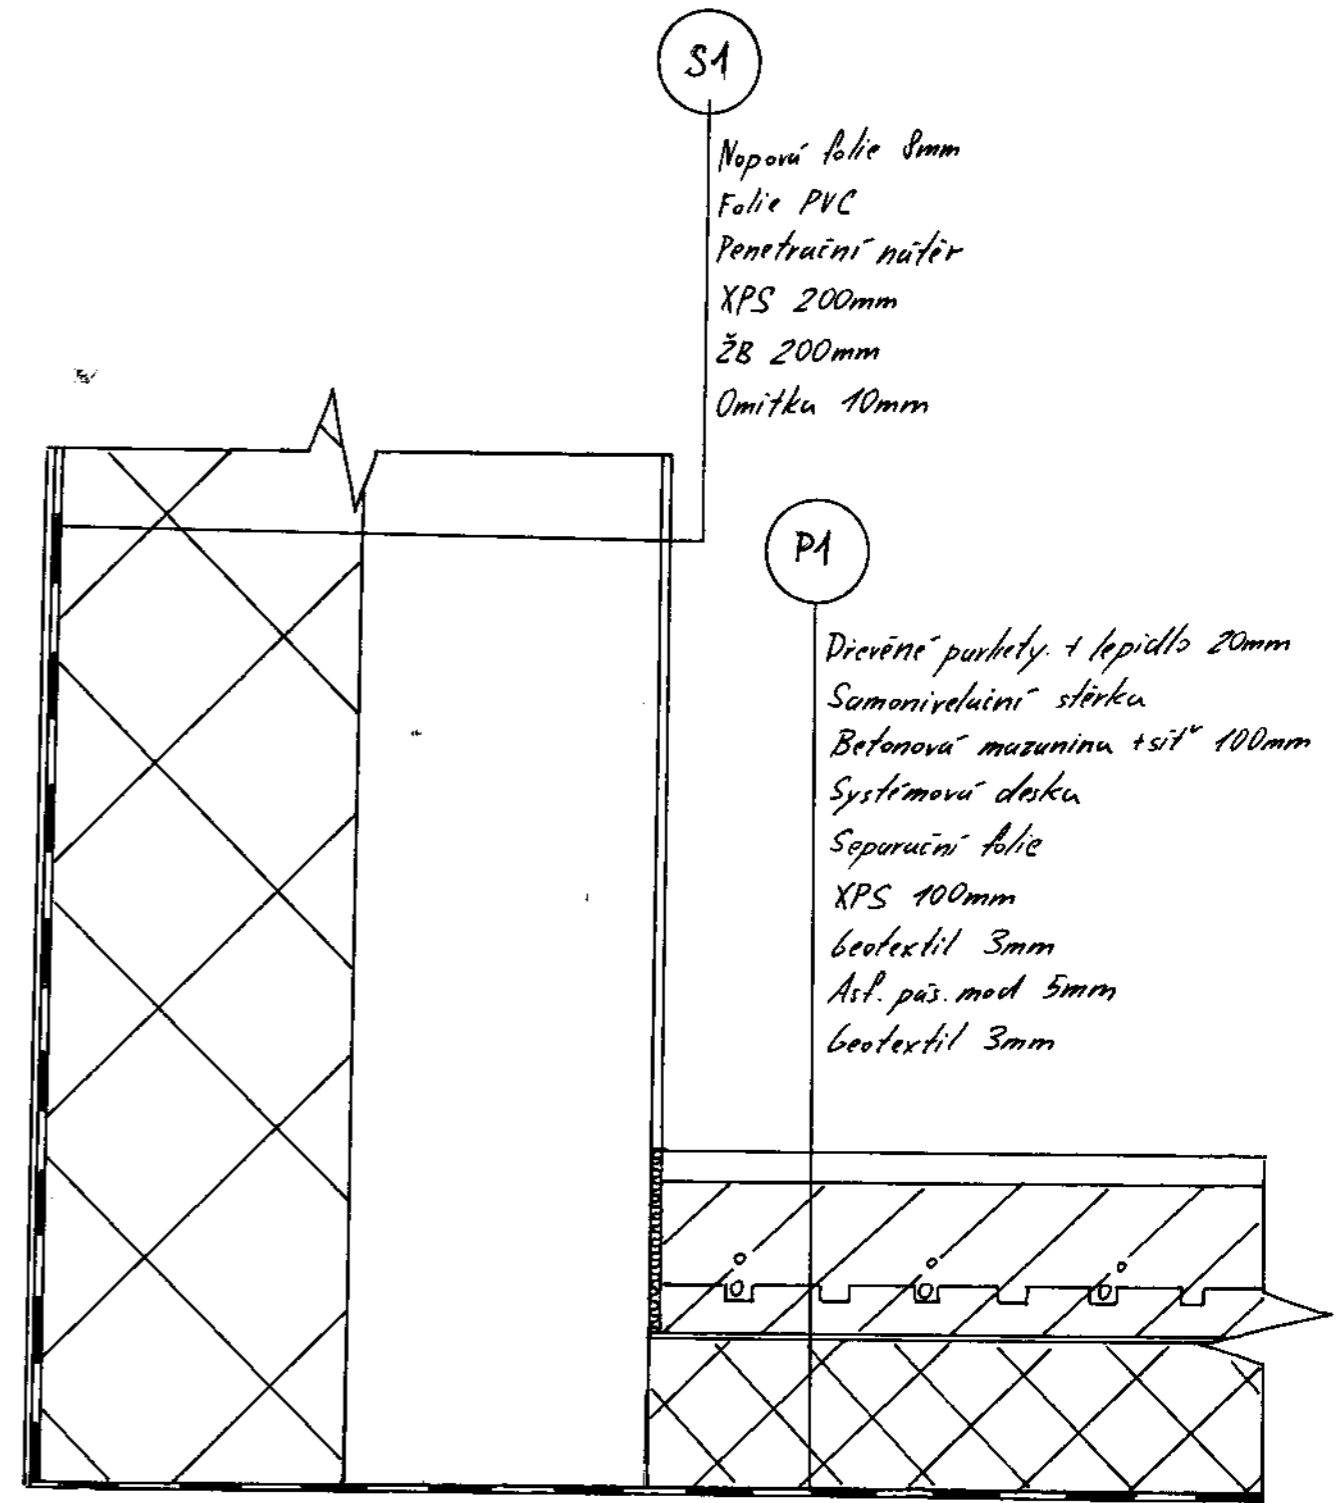 S1
Nopová folie 8mm
Folie PVC
Penetrační nátěr
XPS 200mm
ŽB 200mm
Omítka 10mm
P1
Dřevěné parkety. + lepidlo 20mm
Samonivelační stěrka
Betonová mazanina + síť 100mm
Systémová deska
Separační folie
XPS 100mm
Geotextil 3mm
Asf. pás. mod 5mm
Geotextil 3mm